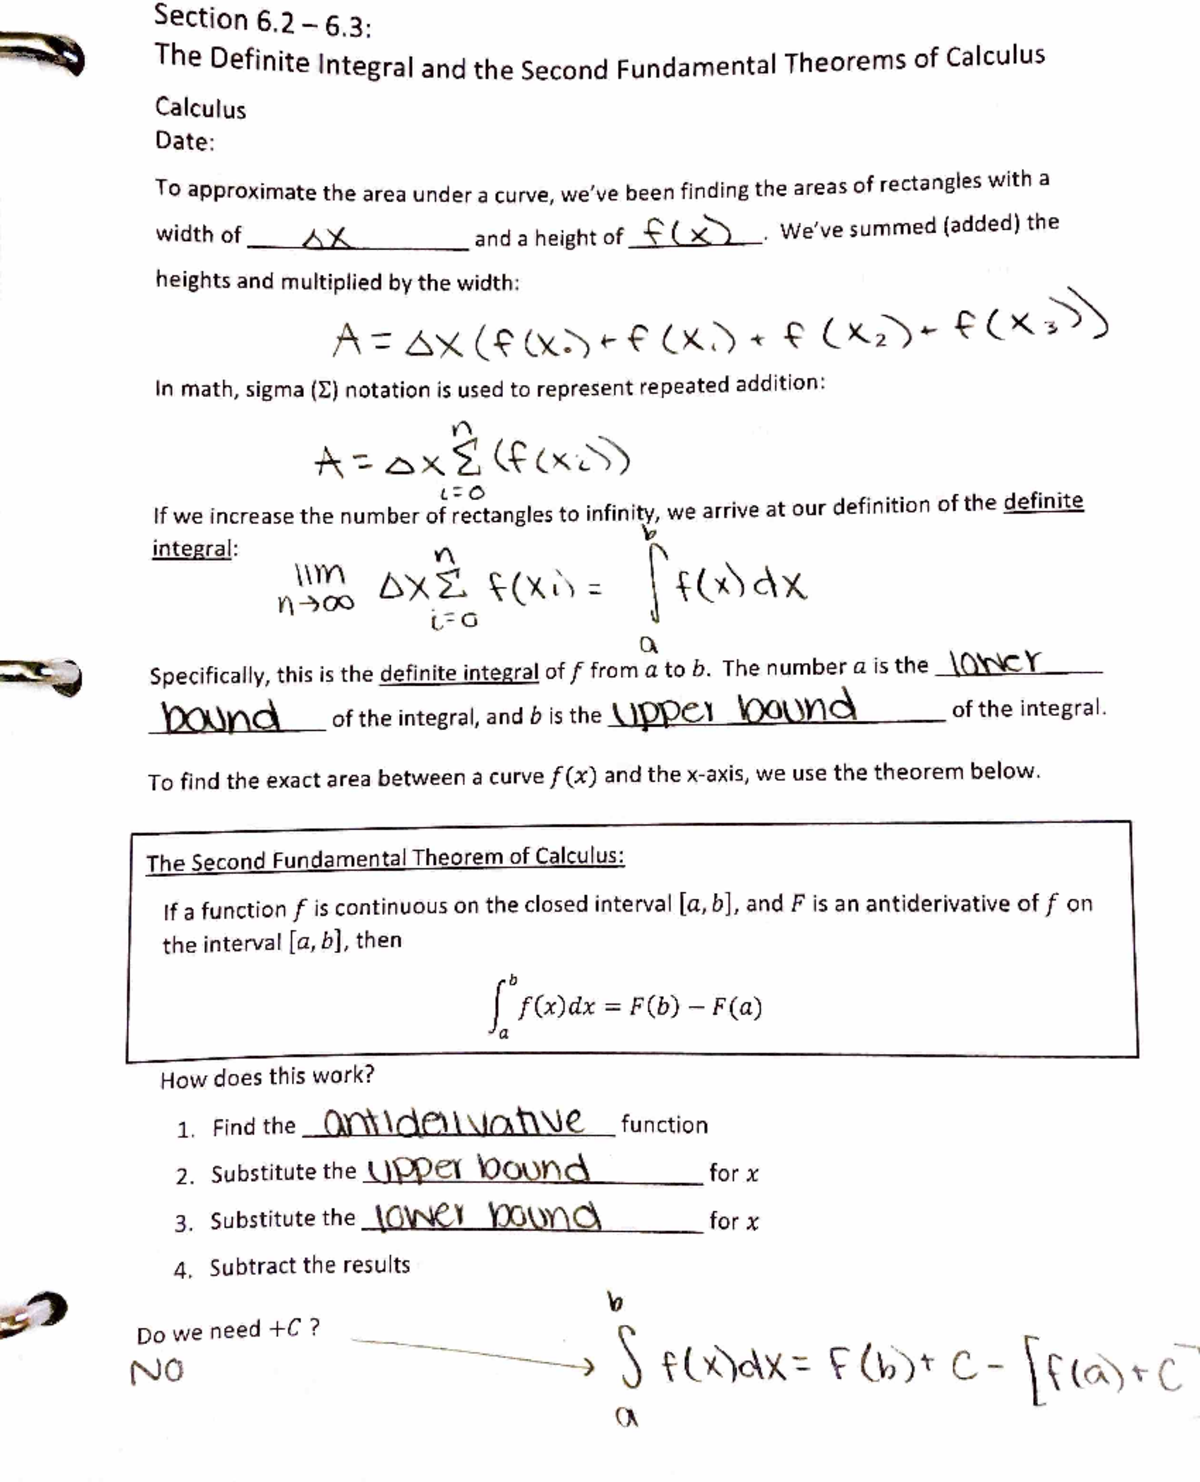 Section 6.2 – 6.3:
The Definite Integral and the Second Fundamental Theorems of Calculus
Calculus
Date:
To approximate the area under a curve, we've been finding the areas of rectangles with a
width of Δx and a height of f(x). We've summed (added) the
heights and multiplied by the width:
A = Δx (f(x₀) + f(x₁) + f(x₂) + f(x₃))
In math, sigma (Σ) notation is used to represent repeated addition:
n
A = Δx Σ (f(xᵢ))
i=0
If we increase the number of rectangles to infinity, we arrive at our definition of the definite
integral:
lim n b
Δx Σ f(xᵢ) = ∫ f(x)dx
n→∞ i=0 a
Specifically, this is the definite integral of f from a to b. The number a is the lower
bound of the integral, and b is the upper bound of the integral.
To find the exact area between a curve f(x) and the x-axis, we use the theorem below.
The Second Fundamental Theorem of Calculus:
If a function f is continuous on the closed interval [a, b], and F is an antiderivative of f on
the interval [a, b], then
∫ₐᵇ f(x)dx = F(b) − F(a)
How does this work?
1. Find the antiderivative function
2. Substitute the upper bound for x
3. Substitute the lower bound for x
4. Subtract the results
Do we need +C ?
NO
b
∫ f(x)dx = F(b) + C - [F(a) + C]
a